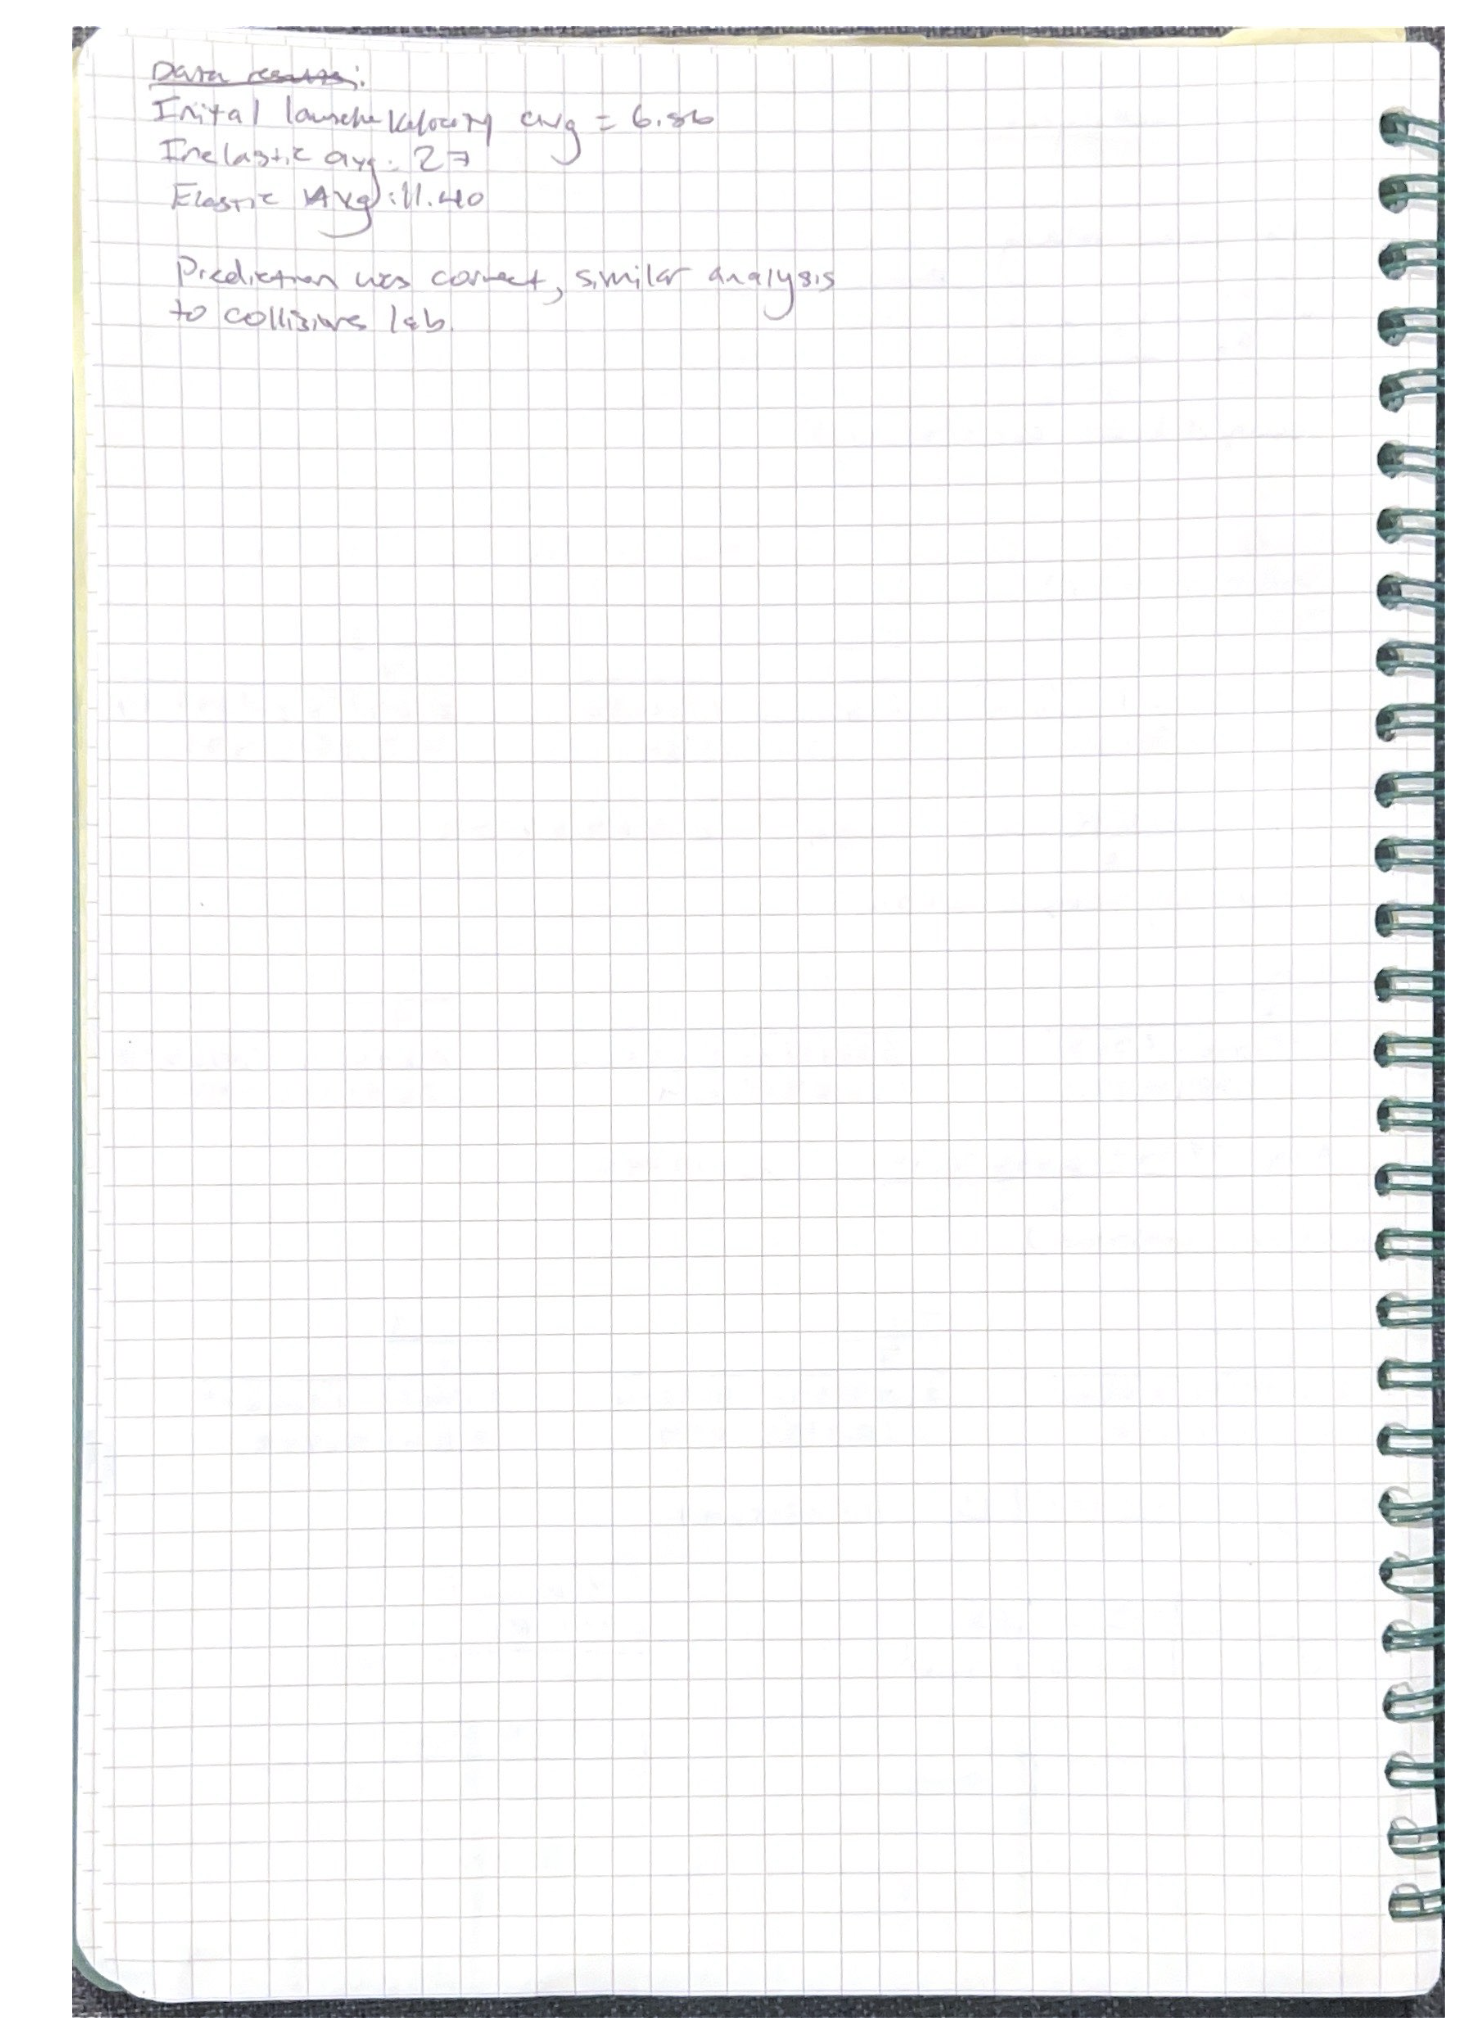 Data results:
Inital launche Velocity avg = 6.86
Inelastic avg: 27
Elastic Avg: 11.40
Prediction was correct, similar analysis
to collisions lab.